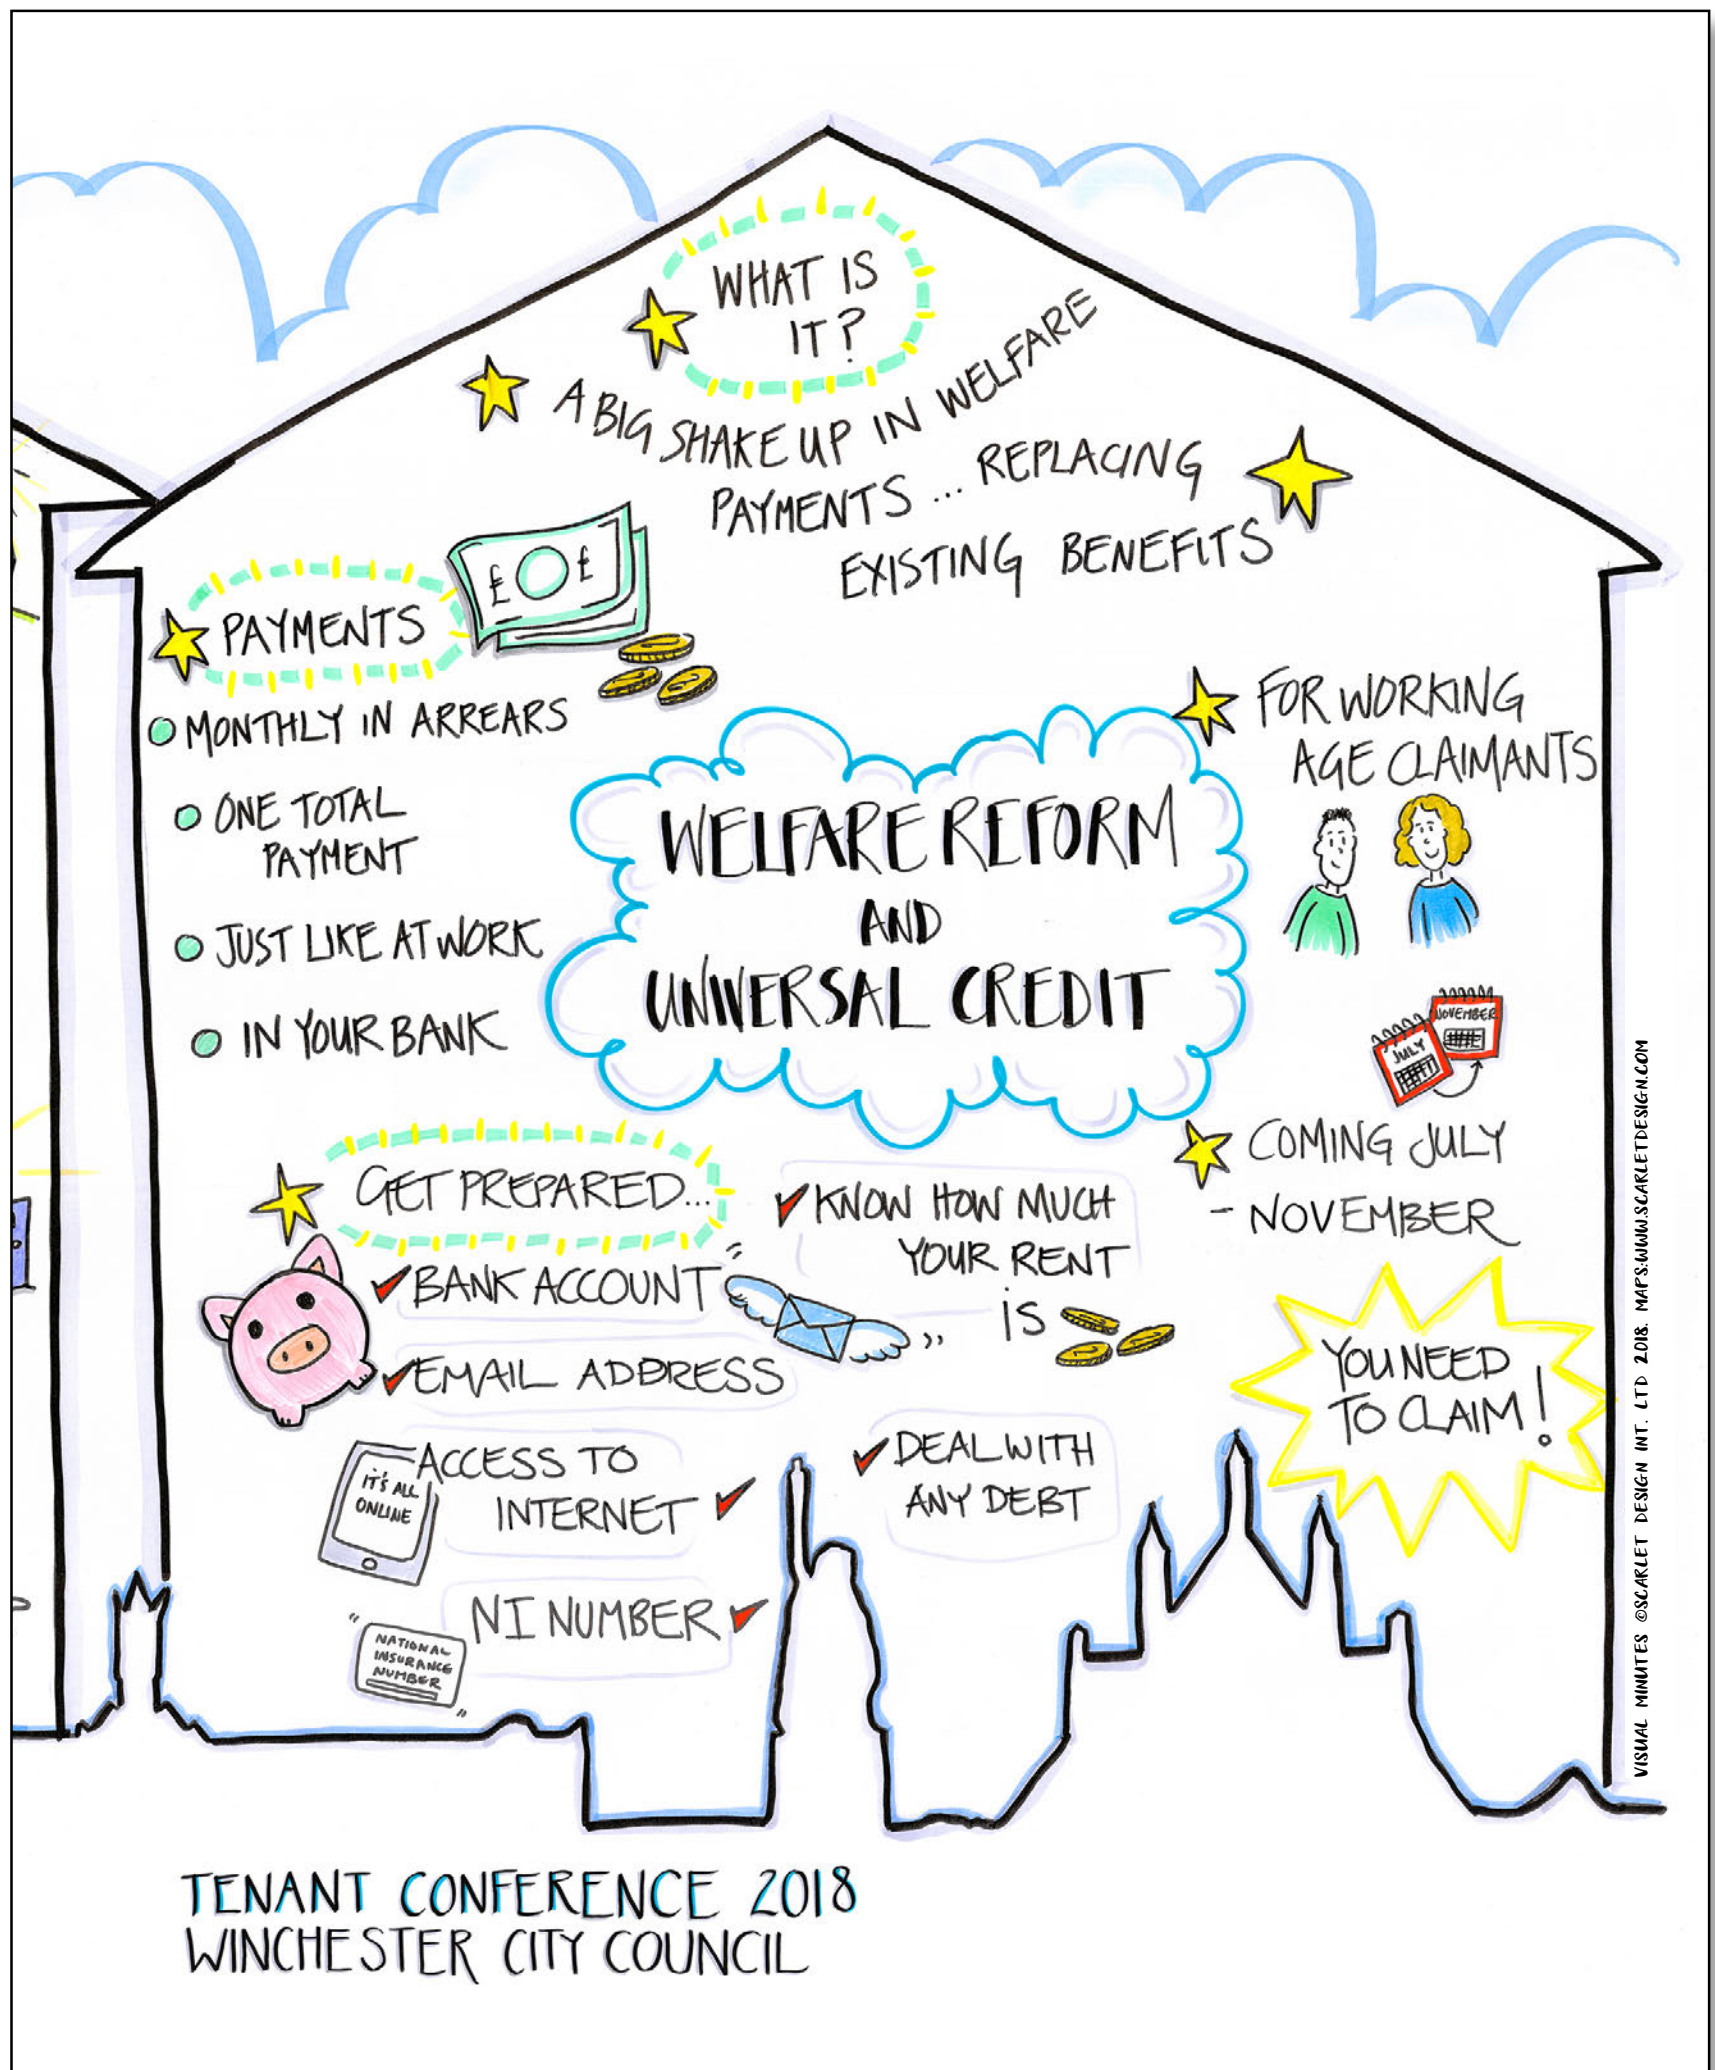 WHAT IS
IT?
A BIG SHAKE UP IN WELFARE
PAYMENTS ... REPLACING
EXISTING BENEFITS
£ £
PAYMENTS
MONTHLY IN ARREARS
ONE TOTAL
PAYMENT
JUST LIKE AT WORK
IN YOUR BANK
WELFARE REFORM
AND
UNIVERSAL CREDIT
FOR WORKING
AGE CLAIMANTS
JULY
NOVEMBER
COMING JULY
- NOVEMBER
YOU NEED
TO CLAIM!
GET PREPARED...
BANK ACCOUNT
EMAIL ADDRESS
ACCESS TO
INTERNET
IT'S ALL
ONLINE
NI NUMBER
NATIONAL
INSURANCE
NUMBER
KNOW HOW MUCH
YOUR RENT
IS
DEAL WITH
ANY DEBT
VISUAL MINUTES ©SCARLET DESIGN INT. LTD 2018. MAPS:WWW.SCARLETDESIGN.COM
TENANT CONFERENCE 2018
WINCHESTER CITY COUNCIL